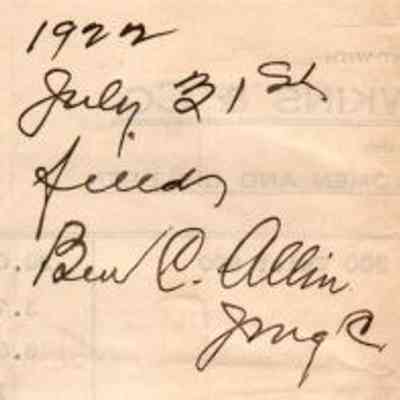 1922
July 31st.
filed
Ben C. Allin